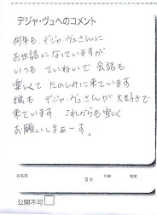 デジャ・ヴュへのコメント
何年も デジャ・ヴュさんに
お世話になっていますが
いつも ていねいで 会話も
楽しくて たのしみに来ています
娘も デジャ・ヴュさんが 大好きで
来ています これからも宜しく
お願いしまぁーす。
お名前
公開不可